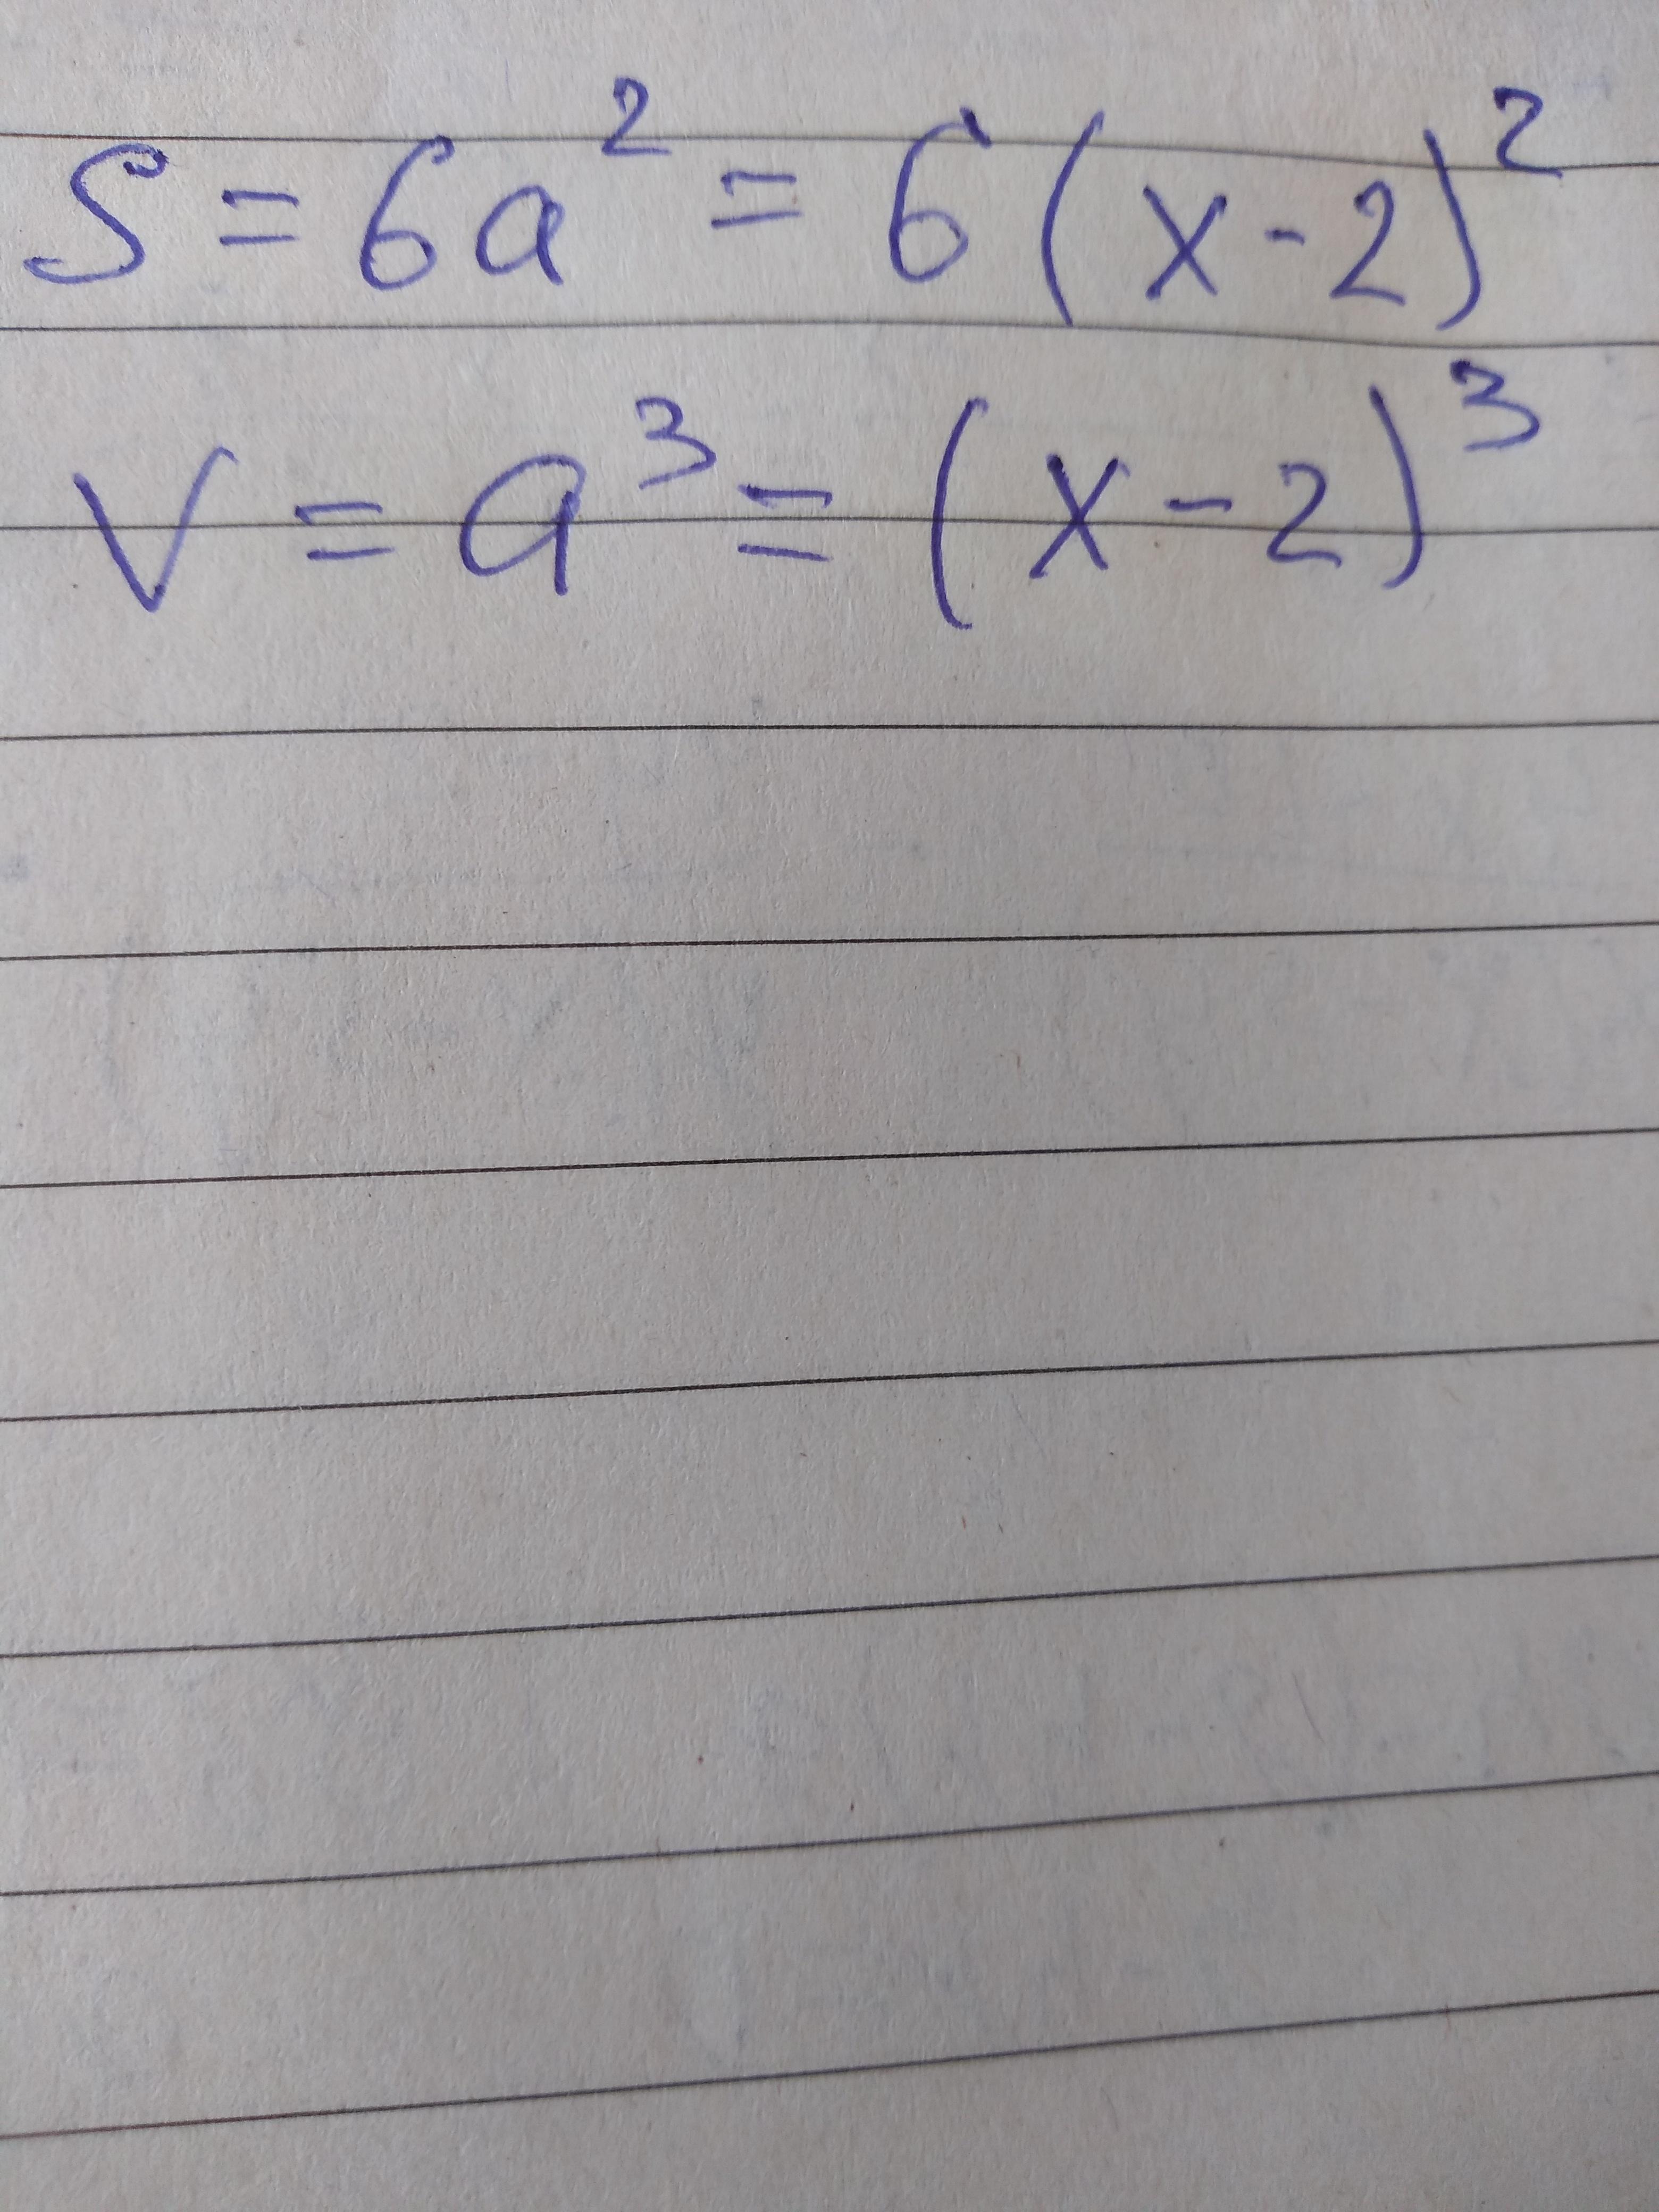 S = 6a² = 6(x-2)²
V = a³ = (x-2)³